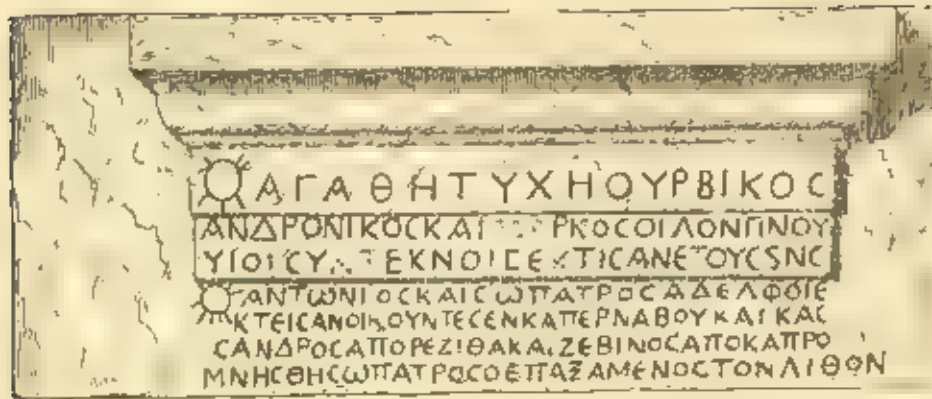 ΑΓΑΘΗΤΥΧΗΟΥΡΒΙΚΟC
ΑΝΔΡΟΝΙΚΟCΚΑΙ ΡΚΟCΟΙΛΟΝΓΙΝΟΥ
ΥΙΟΙCΥ ΤΕΚΝΟΙCΕΚΤΙCΑΝΕΤΟΥCSΝC
ΑΝΤΩΝΙΟCΚΑΙCΩΠΑΤΡΟCΑΔΕΛΦΟΙΕ
ΚΤΕΙCΑΝΟΙΚΟΥΝΤΕCΕΝΚΑΠΕΡΝΑΒΟΥΚΑΙΚΑC
CΑΝΔΡΟCΑΠΟΡΕΖΙΘΑΚΑΙΖΕΒΙΝΟCΑΠΟΚΑΠΡΟ
ΜΝΗCΘΗCΩΠΑΤΡΩCΟΕΠΑΞΑΜΕΝΟCΤΟΝΛΙΘΟΝ